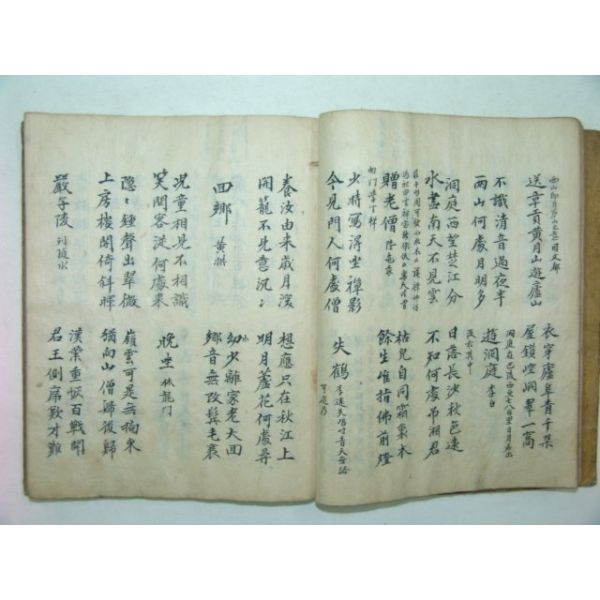 送章貢黃月山遊廬山
衣穿廬阜青千朶
屋鎖崆峒翠一高
不識清音過夜半
兩山何處月明多
遊洞庭 李白
洞庭西望楚江分
水盡南天不見雲
日落長沙秋色遠
不知何處吊湘君
贈老僧
枯皃自同霜裏木
餘生惟指佛前燈
少時寫得坐禪影
今見門人何處僧
失鶴 李遠
養汝由來歲月深
開籠不見意沉〻
想應只在秋江上
明月蘆花何處尋
回鄉 黃拱
幼少離家老大回
鄉音無改鬂毛衰
兒童相見不相識
笑問客從何處來
晚坐 伏龍門
隱〻鍾聲出翠微
上房樓閣倚斜暉
嶺雲可是無拘束
猶向山僧歸後歸
嚴子陵
漢業重恢百戰間
君王側席歎才難